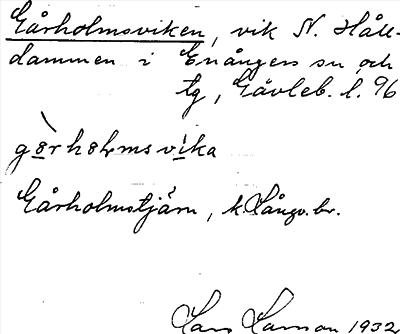 Gårholmsviken, vik N. Håll-
dammen i Enångers sn, och
tg, Gävleb. l. 96
gòrhòlmsvika
Gårholmstjärn, k. Långv. br.
Lars Larsson 1932